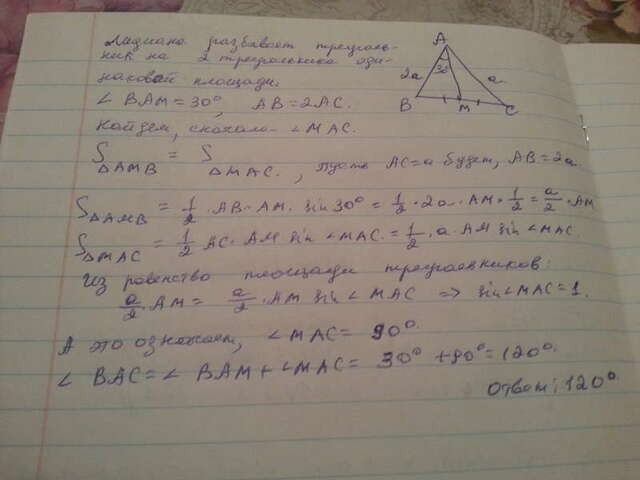 Медиана разбивает треуголь-
ник на 2 треугольника оди-
наковой площади.
∠ BAM = 30°, AB = 2AC.
Найдем, сначала ∠MAC.
S△AMB = S△MAC. , пусть AC = a будет, AB = 2a.
S△AMB = 1/2 · AB · AM. sin 30° = 1/2 · 2a · AM · 1/2 = a/2 · AM
S△MAC = 1/2 AC · AM sin ∠MAC. = 1/2 · a · AM sin ∠MAC.
Из равенства площади треугольников:
a/2 · AM = a/2 · AM sin ∠ MAC ⇒ sin∠MAC = 1.
А это означает, ∠MAC = 90°.
∠ BAC = ∠ BAM + ∠MAC = 30° + 90° = 120°.
Ответ: 120°.
A
30°
2a
a
B
M
C